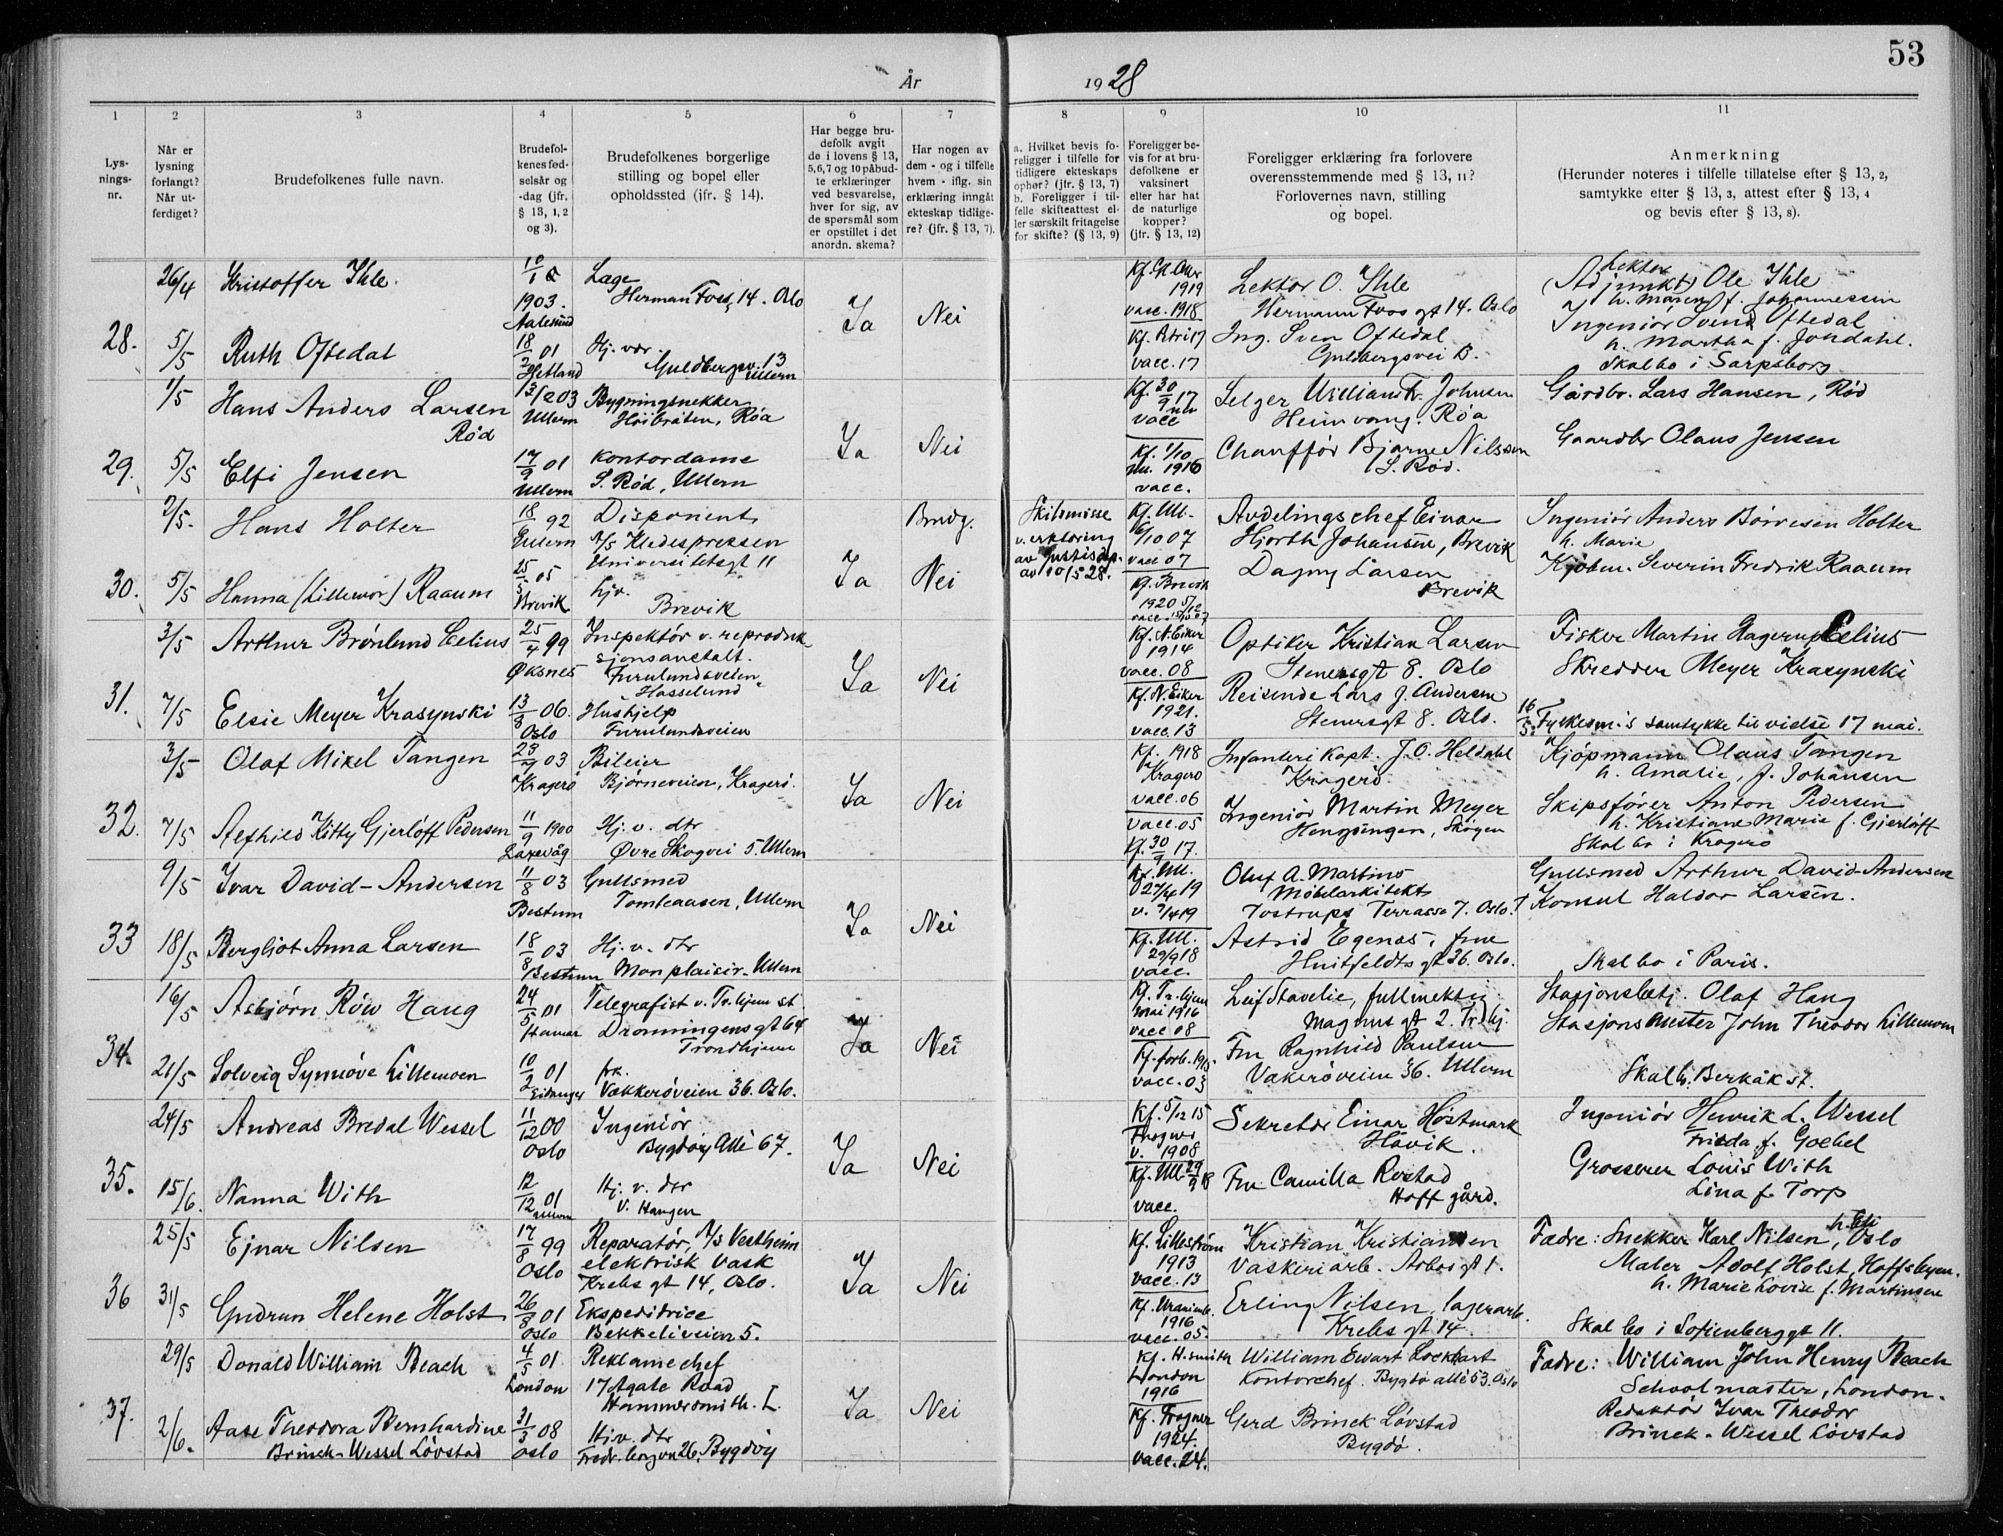 53
År 1928
1 2 3 4 5 6 7 8 9 10 11
Lys-
nings-
nr.
Når er
lysning
forlangt?
Når ut-
ferdiget?
Brudefolkenes fulle navn.
Brudefol-
kenes fød-
selsår og
-dag (jfr.
§ 13, 1, 2
og 3).
Brudefolkenes borgerlige
stilling og bopel eller
opholdssted (jfr. § 14).
Har begge bru-
defolk avgit
de i lovens § 13,
5,6,7 og 10 påbud-
te erklæringer
ved besvarelse,
hver for sig, av
de spørsmål som
er opstillet i det
anordn. skema?
Har nogen av
dem - og i tilfelle
hvem - iflg. sin
erklæring inngått
ekteskap tidlige-
re? (jfr. § 13, 7).
a. Hvilket bevis fo-
religger i tilfelle for
tidligere ekteskaps
ophør? (jfr. § 13, 7)
b. Foreligger i til-
felle skifteattest el-
ler særskilt fritagelse
for skifte? (§ 13, 9)
Foreligger be-
vis for at bru-
defolkene er
vaksinert
eller har hat
de naturlige
kopper?
(jfr. § 13, 12)
Foreligger erklæring fra forlovere
overensstemmende med § 13, 11?
Forlovernes navn, stilling
og bopel.
Anmerkning
(Herunder noteres i tilfelle tillatelse efter § 13, 2,
samtykke efter § 13, 3, attest efter § 13, 4
og bevis efter § 13, 8).
28.
26/4
Kristoffer Ihle.
1903.
Aalesund
Herman Foss 14. Oslo
Ja
Nei
1919
vacc. 1918
Lektor O. Ihle
Hermann Foss gt 14. Oslo
Lektor
(Adjunkt) Ole Ihle
h. Maren f. Johannessen
5/5
Ruth Oftedal
18/2 01
Hetland
Hj. vær.
Guldbergsv. 13
Ullern
vacc. 17
Ing. Sven Oftedal
Gulbergsvei B.
Ingeniør Svend Oftedal
h. Martha f. Jondahl.
Skal bo i Sarpsborg
29.
1/5
Hans Anders Larsen
Rød
Ullern
Bygningsnekker
Høibråten, Røa
Ja
Nei
Kf. 30/9 17
vacc
Selger William Fr. Johnsen
Heimvang. Røa
Gårdbr. Lars Hansen, Rød
5/5
Elfi Jensen
17/9 01
Ullern
Kontordame
S. Rød, Ullern
Kf. 1/10
1916
vacc.
Chauffør Bjarne Nilssen
S. Rød.
Gaardbr Olaus Jensen
30.
2/5.
Hans Holter
18/ 92
Ullern
Disponent
A/S Kledespressen
Universitetsgt 11
Ja
Brudg.
Skilsmisse
v. erklæring
av Justisdep.
av 10/5 28.
Kf. Ull.
6/10 07
vacc 07
Avdelingschef Einar
Hjorth Johansen, Brevik
Ingeniør Anders Børresen Holter
h. Marie
5/5
Hanna (Lillemor) Raaum
25/5 05
Brevik
hjv.
Brevik
Nei
Kf. Brevik
1920
Dagny Larsen
Brevik
Kjøbm. Severin Fredrik Raaum
31.
3/5
Arthur Brønlund Celius
25/4 99
Øksnes
Inspektør v. reproduk-
sjonsanstalt.
Furulundsveien
Hasselund
Ja
Nei
Kf. N. Eiker
1914
vacc. 08
Optiker Kristian Larsen
Stenersgt 8. Oslo
Fisker Martin Hagerup Celius
7/5
Elsie Meyer Krasynski
13/8 06.
Oslo
Hushjelp
Furulundsveien
Kf. N. Eiker
1921.
vacc. 13
Reisende Lars J. Andersen
Stenersgt 8. Oslo.
Skredder Meyer Krasynski
16/5: Fylkesm's samtykke til vielse 17 mai.
32.
3/5
Olaf Mikel Tangen
03
Kragerø
Bileier
Bjørneveien, Kragerø.
Ja
Nei
Kf. 1918
Kragerø
vacc. 06
Infanteri Kapt. J. O. Heldahl
Kragerø
Kjøpmann Olaus Tangen
h. Amalie, f. Johansen
7/5
Kitty Gjerløff Pedersen
11/9 1900
Laxevåg
Hj. v. dtr
Øvre Skogvei 5. Ullern
vacc. 05
Kf. 30/9 17.
Ingeniør Martin Meyer
Hengsengen, Skøyen
Skipsfører Anton Pedersen
h. Kristiane Marie f. Gjerløff
Skal bo i Kragerø
33
9/5
Ivar David-Andersen
11/8 03
Bestum
Gullsmed
Tomteaasen, Ullern
Ja
Nei
Kf. Ull.
27/4 19
v. 7/4 19
Oluf A. Martins
Møbelarkitekt
Tostrups Terrasse 7. Oslo.
Gullsmed Arthur David-Andersen
18/5
Bergljot Anna Larsen
18/8 03
Bestum
Hj. v. dtr
Mon plaisir. Ullern
Kf. Ull.
29/9 18
vacc.
Astrid Egenæs, frue
Huitfeldts gt 36. Oslo.
Konsul Haldor Larsen.
Skal bo i Paris.
34.
16/5
Asbjørn Røw Haug
24/5 01
Hamar
Telegrafist v. Tr.hjem st.
Dronningensgt 64
Trondhjem
Ja
Nei
Kf. Tr.hjem
mai 1916
vacc 08
Leif Stavelie, fullmektig
Magnus gt 2. Trdhj.
Stasjonsbetj. Olaf Haug
21/5
Solveig Synnøve Lillemoen
10/2 01
Eidanger
frk.
Vækkerøveien 36. Oslo.
vacc. 03
Fru Ragnhild Paulsen
Vækerøveien 36. Ullern
Stasjonsmester John Theodor Lillemoen
Skal b. Berkåk st.
35.
24/5
Andreas Bredal Wessel
11/12 00
Oslo
Ingeniør
Bygdøy Allé 67.
Ja
Nei
Kf. 5/12 15
v. 1908
Sekretær Einar Høstmark
Høvik.
Ingeniør Henrik L. Wessel
Frieda f. Goebel
15/6.
Nanna With
12/12 01
Ullern
Hj. v. dtr
V. Haugen
Kf. Ull. 29/9 18
vacc.
Fru Camilla Rostad
Hoff gård.
Grosserer Louis With
Lina f. Torp
36
25/5
Ejnar Nilsen
17/8 99
Oslo
Reparatør, A/S Vestheim
elektrisk vask
Krebs gt 14, Oslo.
Ja
Nei
Kf. Lillestrøm
1913
vacc. 13
Kristian Kristiansen
Vaskeriarb. Arbosgt 1.
Fædre: Snekker Karl Nilsen, Oslo
31/5
Gudrun Helene Holst
26/8 01
Oslo
Ekspeditrice
Bekkeliveien 5.
Kf. Uranienb.
1916
vacc. 05.
Erling Nilsen, lagerarb.
Krebs gt 14.
Maler Adolf Holst, Hoffsbyen.
h. Marie Lovise f. Martinsen
Skal bo i Sofienberggt 11.
37.
29/5
Donald William Beach
4/5 01
London
Reklamechef
17 Agate Road
Hammersmith. L.
Ja
Nei
Kf. H.smith
London
1916
William Ewart Lockhart
Kontorchef. Bygdø allé 53. Oslo
Fædre: William John Henry Beach
Schoolmaster, London.
2/6.
Aase Theodora Bernhardine
Brinck-Wessel Løvstad
31/3 08
Oslo
Hjv. dtr
Fredr.borgvn 26. Bygdøy
Kf. Frogner
1924
vacc. 24.
Gerd Brinck Løvstad
Bygdø.
Redaktør Ivar Theodor
Brinck-Wessel Løvstad